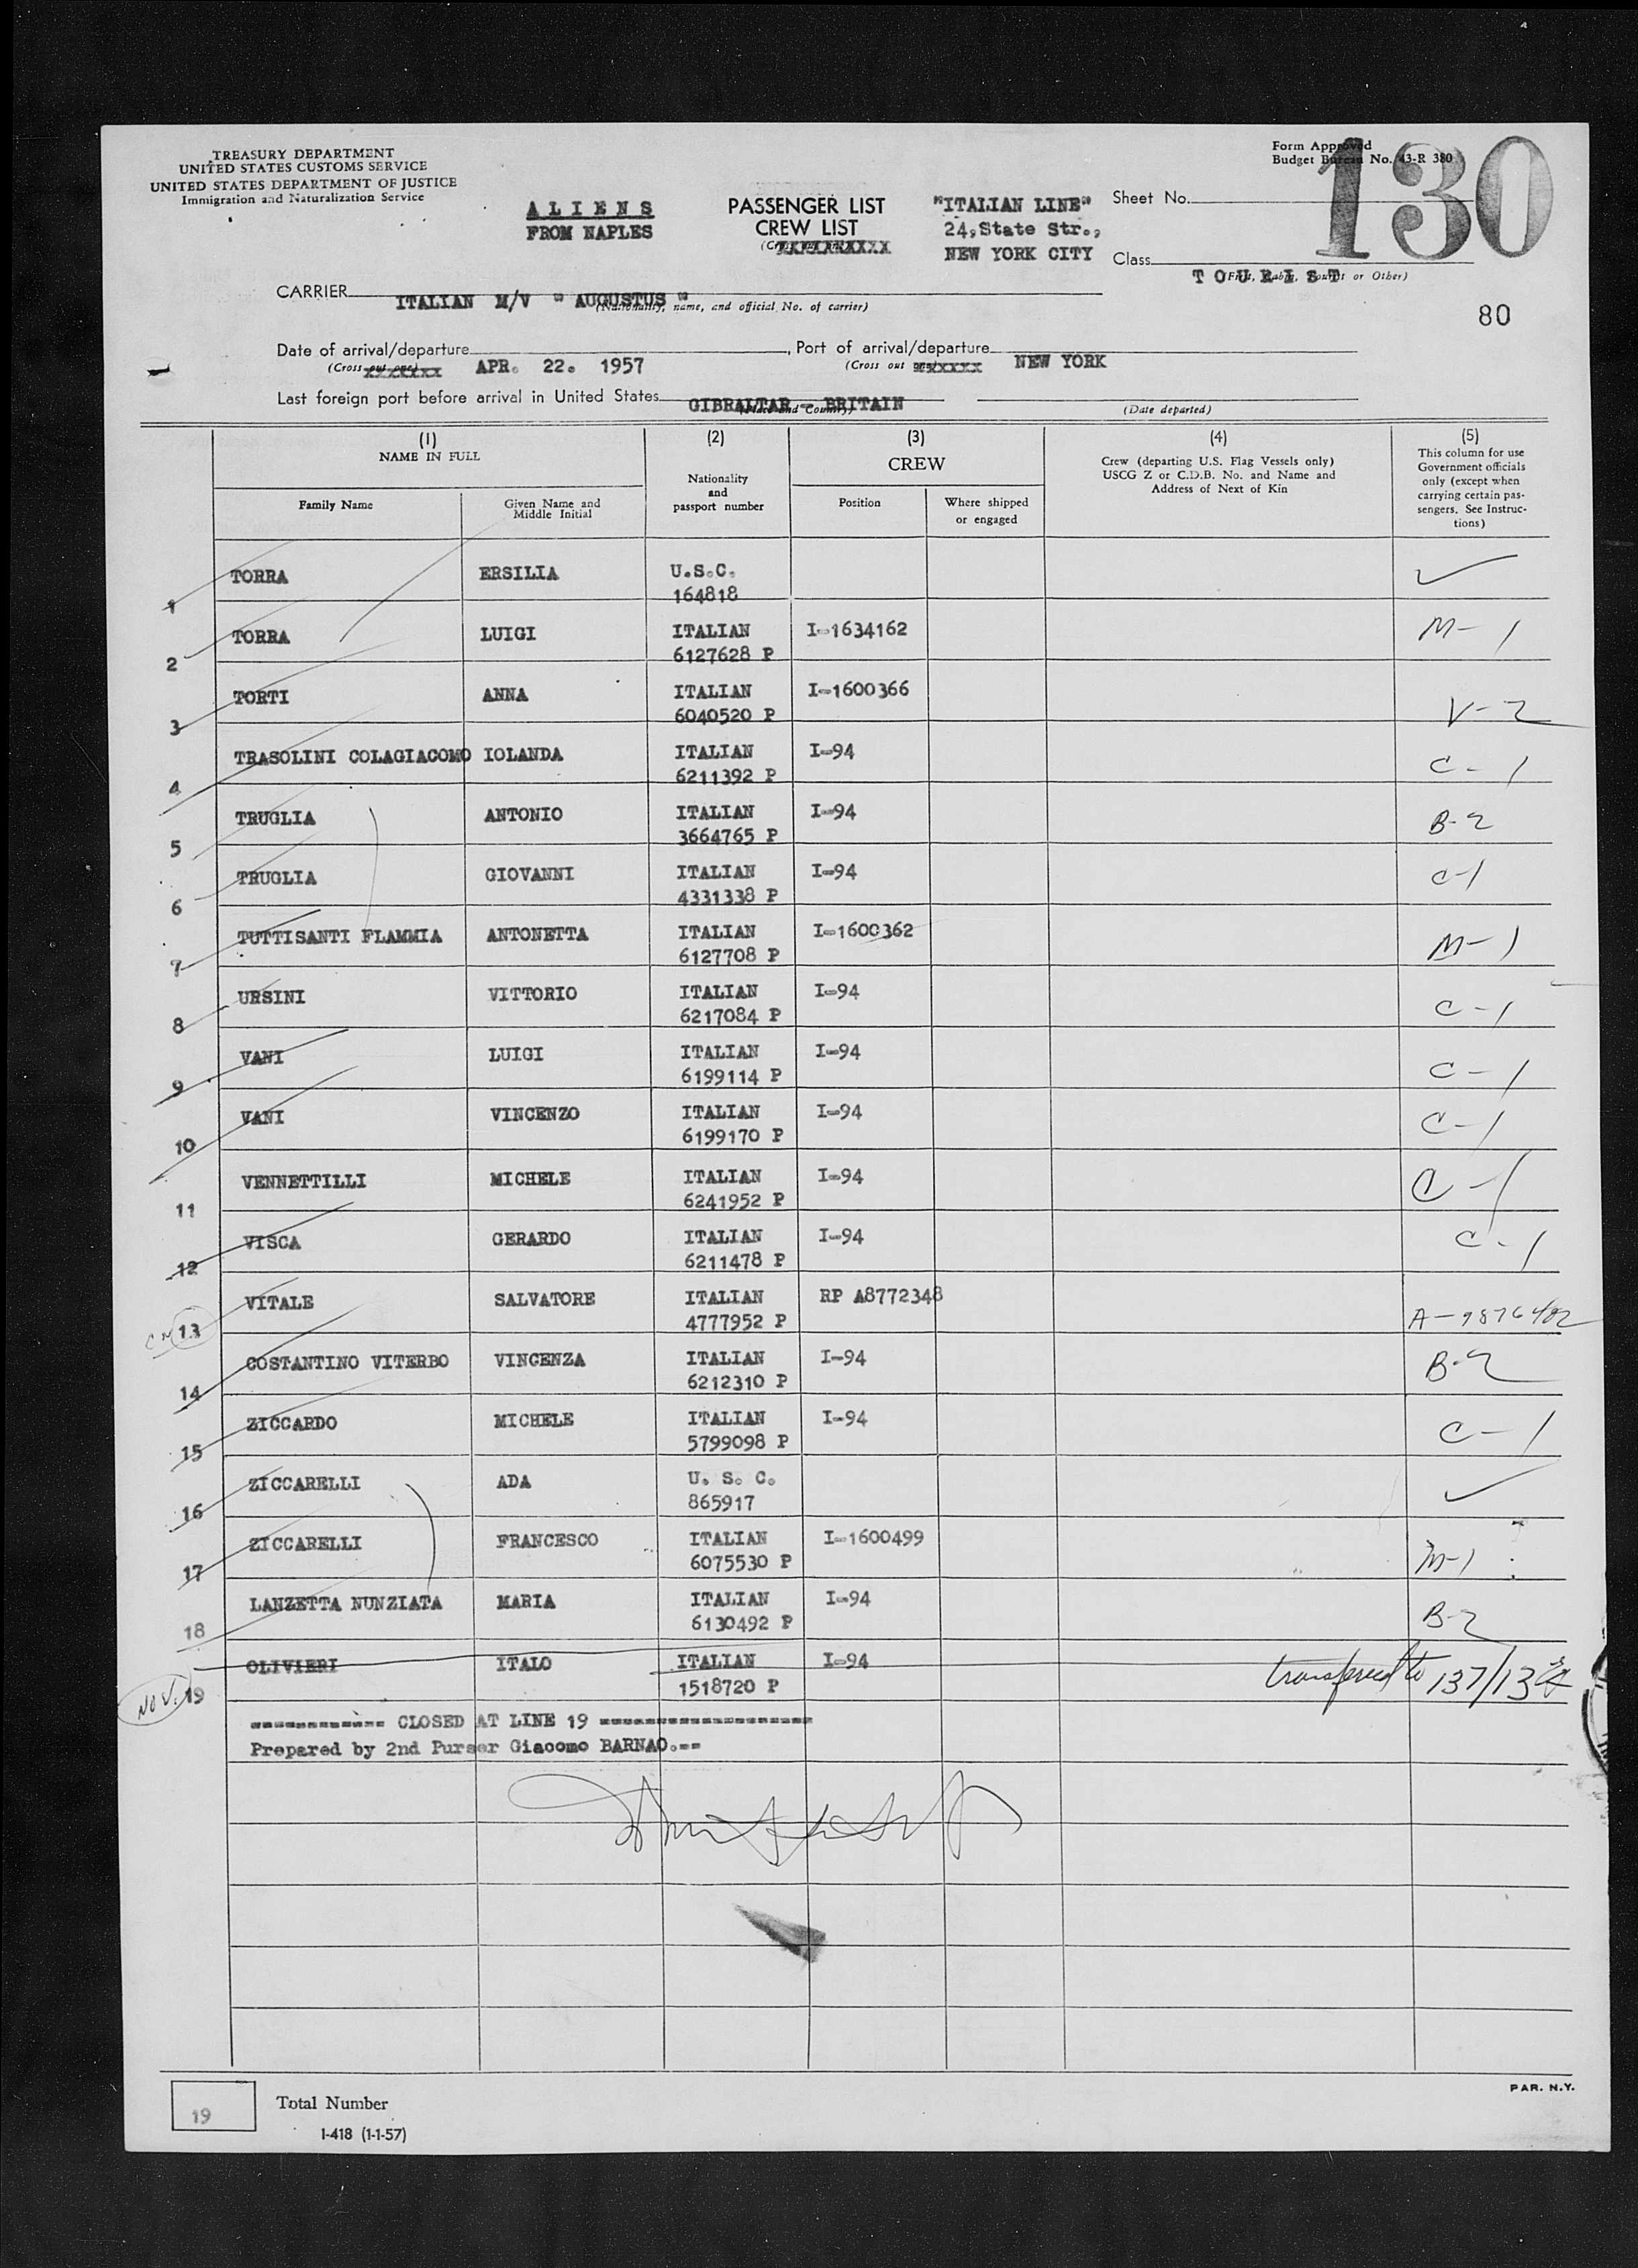 TREASURY DEPARTMENT
UNITED STATES CUSTOMS SERVICE
UNITED STATES DEPARTMENT OF JUSTICE
Immigration and Naturalization Service
ALIENS
FROM NAPLES
PASSENGER LIST
CREW LIST
"ITALIAN LINE"
24,State Str.,
NEW YORK CITY
Form Approved
Budget Bureau No. 43-R 380
130
Sheet No.
Class
TOURIST
or Other)
80
CARRIER
ITALIAN M/V " AUGUSTUS "
(Nationality, name, and official No. of carrier)
Date of arrival/departure
(Cross out one)
APR. 22. 1957
, Port of arrival/departure
(Cross out
NEW YORK
Last foreign port before arrival in United States
GIBRALTAR - BRITAIN
(Place and Country)
(Date departed)
(1) (2) (3) (4) (5)
NAME IN FULL
Family Name
Given Name and
Middle Initial
Nationality
and
passport number
CREW
Position
Where shipped
or engaged
Crew (departing U.S. Flag Vessels only)
USCG Z or C.D.B. No. and Name and
Address of Next of Kin
This column for use
Government officials
only (except when
carrying certain pas-
sengers. See Instruc-
tions)
1 TORRA ERSILIA U.S.C.
164818
2 TORRA LUIGI ITALIAN I-1634162 M-1
6127628 P
3 TORTI ANNA ITALIAN I-1600366 V-2
6040520 P
4 TRASOLINI COLAGIACOMO IOLANDA ITALIAN I-94 C-1
6211392 P
5 TRUGLIA ANTONIO ITALIAN I-94 B-2
3664765 P
6 TRUGLIA GIOVANNI ITALIAN I-94 C-1
4331338 P
7 TUTTISANTI FLAMMIA ANTONETTA ITALIAN I-1600362 M-1
6127708 P
8 URSINI VITTORIO ITALIAN I-94 C-1
6217084 P
9 VANI LUIGI ITALIAN I-94 C-1
6199114 P
10 VANI VINCENZO ITALIAN I-94 C-1
6199170 P
11 VENNETTILLI MICHELE ITALIAN I-94 C-1
6241952 P
12 VISCA GERARDO ITALIAN I-94 C-1
6211478 P
13 VITALE SALVATORE ITALIAN RP A8772348
4777952 P
14 COSTANTINO VITERBO VINCENZA ITALIAN I-94 B-2
6212310 P
15 ZICCARDO MICHELE ITALIAN I-94 C-1
5799098 P
16 ZICCARELLI ADA U. S. C.
865917
17 ZICCARELLI FRANCESCO ITALIAN I-1600499 M-1
6075530 P
18 LANZETTA NUNZIATA MARIA ITALIAN I-94 B-2
6130492 P
NOV. 19 OLIVIERI ITALO ITALIAN I-94 transferred to
1518720 P
CLOSED AT LINE 19
Prepared by 2nd Purser Giacomo BARNAO.--
19
Total Number
I-418 (1-1-57)
PAR. N.Y.